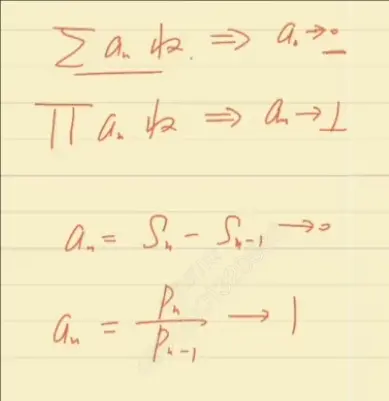 ∑ aₙ 收 ⇒ aₙ → 0
∏ aₙ 收 ⇒ aₙ → 1
aₙ = Sₙ - Sₙ₋₁ → 0
aₙ = Pₙ / Pₙ₋₁ → 1